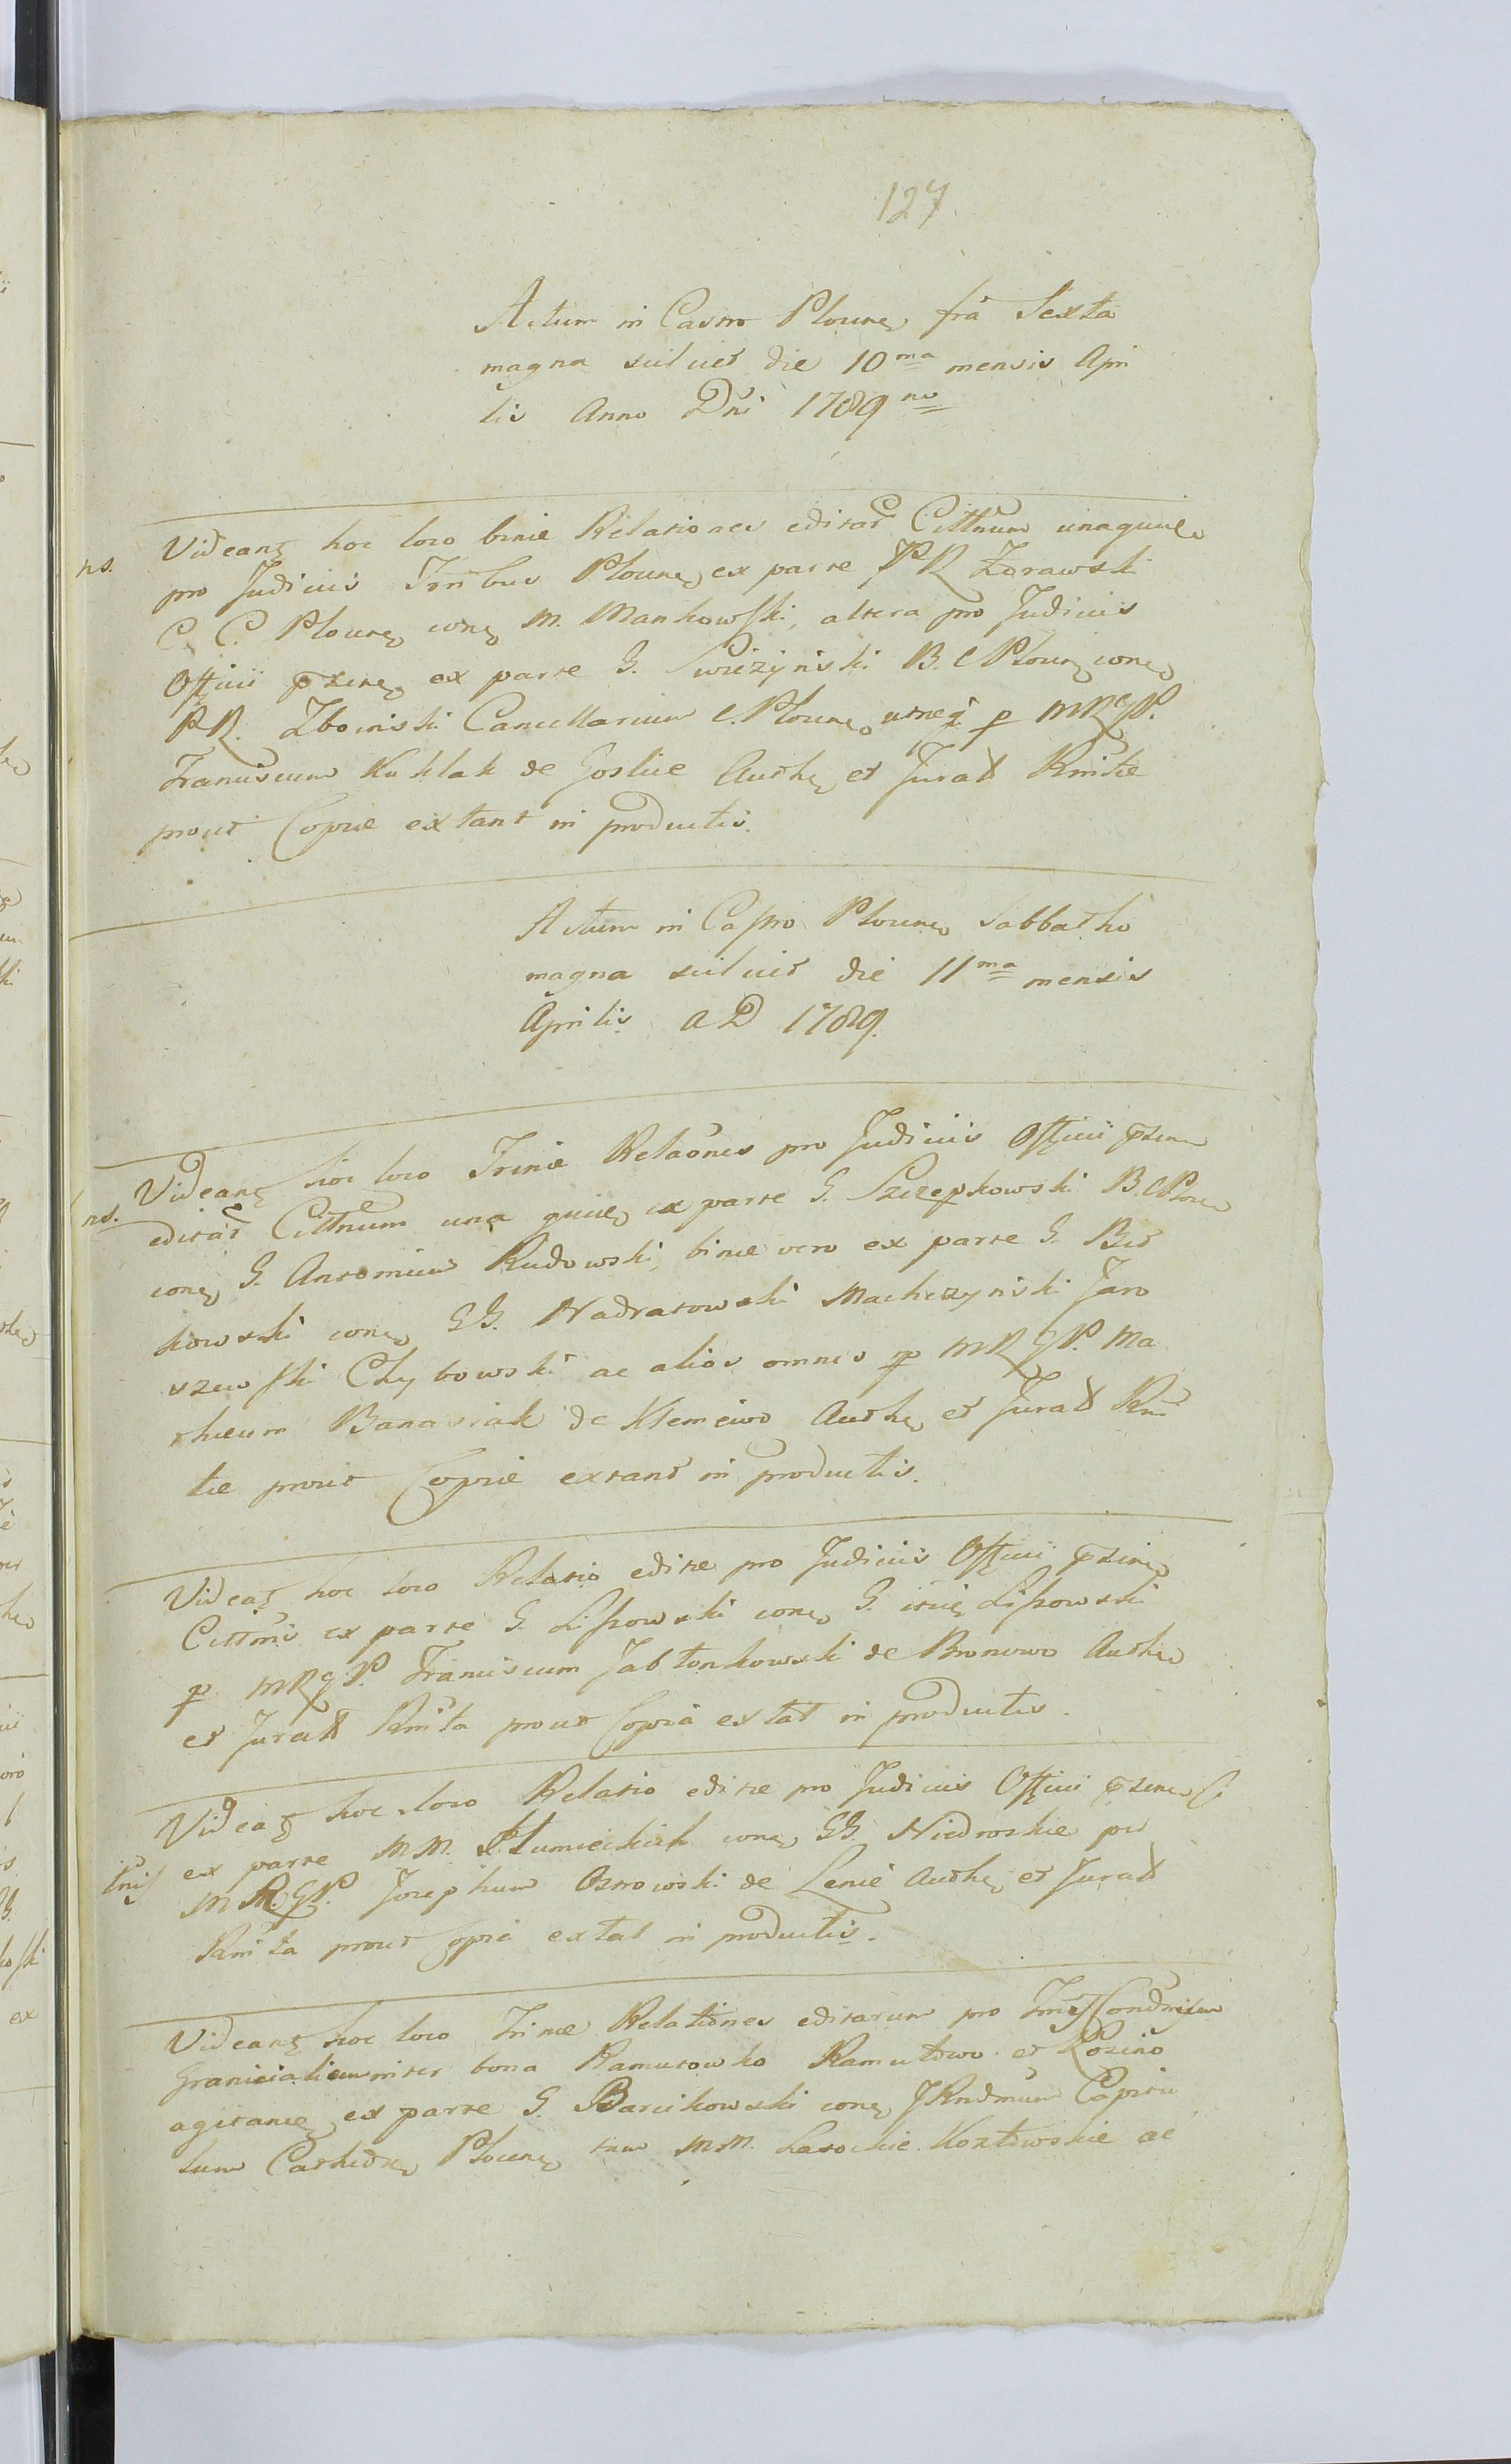 127
Actum in Castro Plocen fra Sexta
magna scilicet die 10ma mensis Apri
lis Anno Dni 1789no
Videant hoc loco binæ Relationes editar Cittnum una quidem
ns.
pro Judiciis Trribus Plocen ex parte PR Zorawski
C. C. Plocen con M. Mankowski, altera pro Judiciis
Officii præsen ex parte G. Swiezynski B. C Plocen con
PR. Zboinski Cancellarium C. Plocen utreq p MRGP.
Franciscum Kuklak de Goslice Authen et Jurat Rnitæ
prout Copiæ extant in productis.
Actum in Castro Plocen Sabbatho
magna scilicet die 11ma mensis
Aprilis AD 1789.
Videant hoc loco Trinæ Relaones pro Judiciis Officii præsen
ns.
editar Cittnum una quidem ex parte G. Szczepkowski B. C Plocen
con G. Antonium Rudowski, binæ vero ex parte G. Bet
kowski con GG. Nadratowski Machczynski Jaro
szewski Chybowski ac alios omnes p MRGP. Ma
thæum Banasiak de Klemewo Authen et Jurat Rni
tæ prout Copiæ extant in productis.
Videat hoc loco Relatio editæ pro Judiciis Officii præsen
Cittnis ex parte G. Lissowski con G. item Lissowski
p MRGP. Franciscum Jabłonkowski de Bronowo Authen
et Jurat Rnita prout Copia extat in productis.
Videat hoc loco Relatio editæ pro Judiciis Officii præsen Ci
tnis
ex parte MM. Humieckich con GG. Niedroskie per
MRGP. Josephum Ostrowski de Lenie Authen et Jurat
Rnita prout Copia extat in productis.
Videant hoc loco Trinæ Relationes editarum pro Condnisum
Granicialium inter bona Ramutowko Ramutowo et Rozino
agitan ex parte G. Barcikowski con JRndmum Capitu
lum Cathedr Plocen tum MM. Lasockie Kozłowskie ac